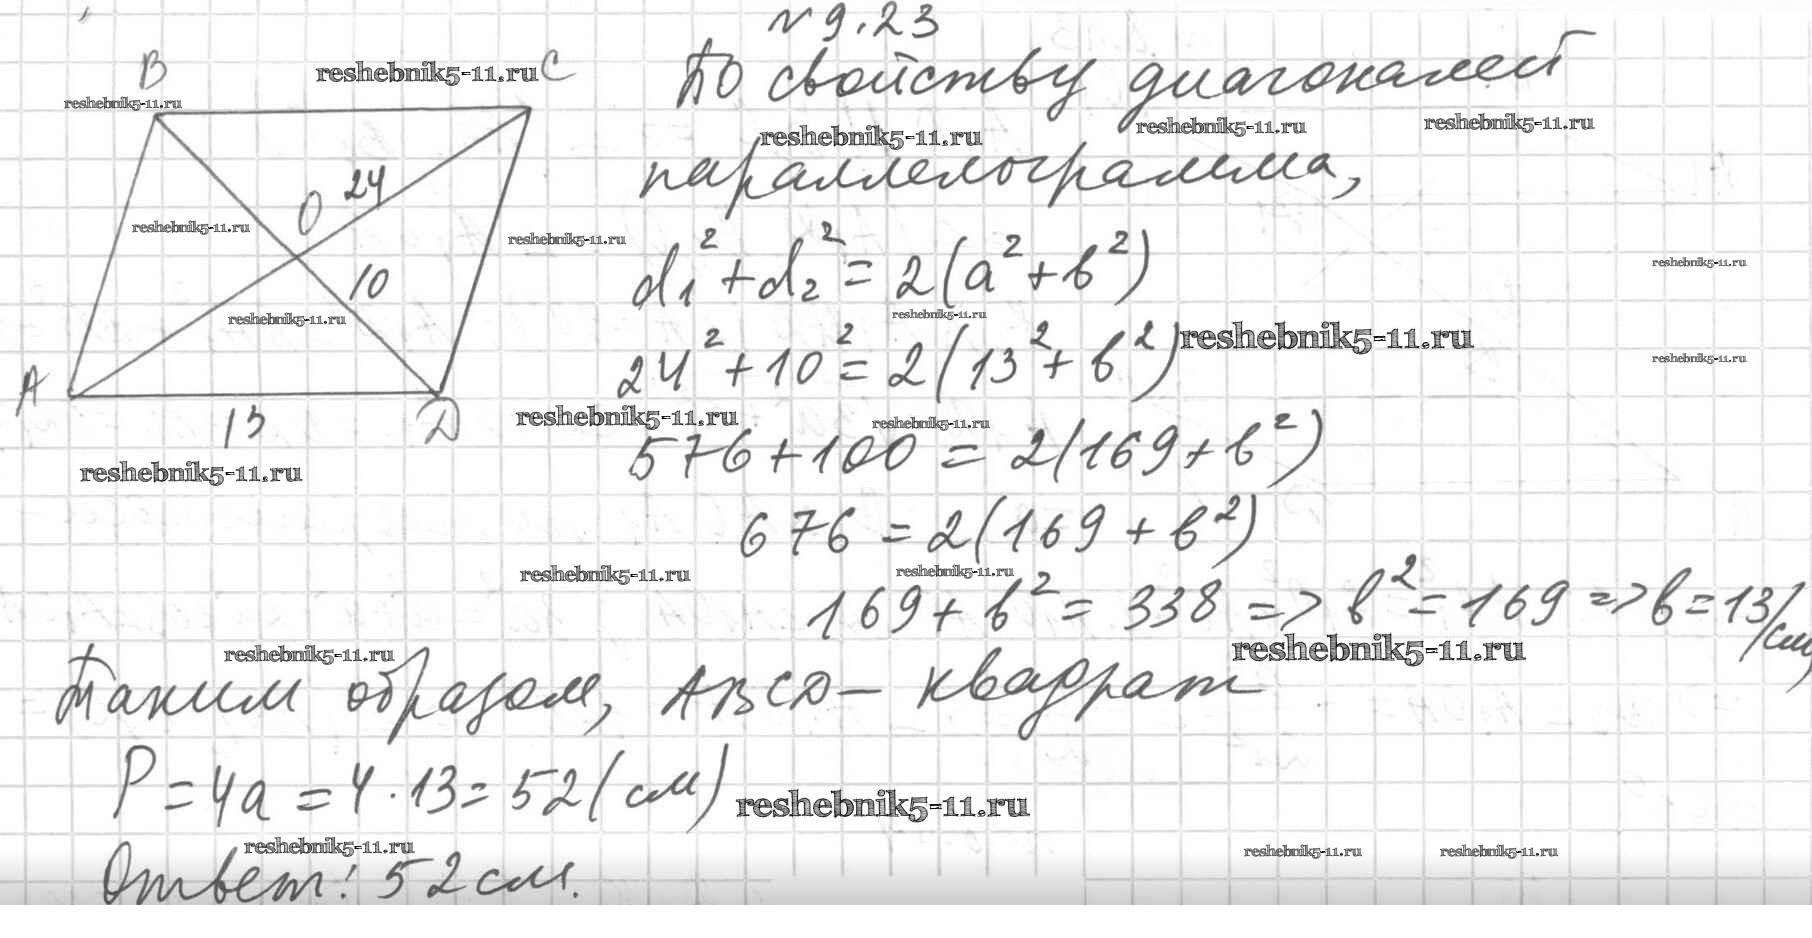 № 9.23
B
reshebnik5-11.ru C
По свойству диагоналей
reshebnik5-11.ru
reshebnik5-11.ru
reshebnik5-11.ru
reshebnik5-11.ru
параллелограмма,
24
O
reshebnik5-11.ru
reshebnik5-11.ru
d₁² + d₂² = 2(a² + b²)
reshebnik5-11.ru
10
reshebnik5-11.ru
reshebnik5-11.ru
24² + 10² = 2(13² + b²)
reshebnik5-11.ru
reshebnik5-11.ru
A
13
D
reshebnik5-11.ru
reshebnik5-11.ru
576 + 100 = 2(169 + b²)
reshebnik5-11.ru
676 = 2(169 + b²)
reshebnik5-11.ru
reshebnik5-11.ru
169 + b² = 338 => b² = 169 => b = 13(см)
reshebnik5-11.ru
reshebnik5-11.ru
Таким образом, ABCD – квадрат
P = 4a = 4 · 13 = 52 (см)
reshebnik5-11.ru
reshebnik5-11.ru
reshebnik5-11.ru
reshebnik5-11.ru
Ответ: 52 см.